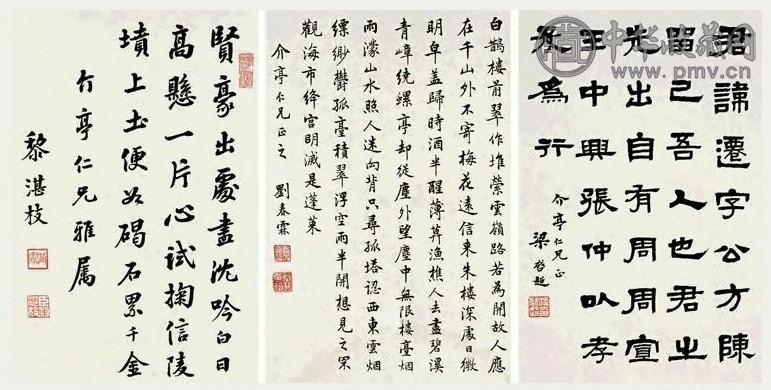 君諱遷字公方陳
留己吾人也君之
先出自有周周宣
王中興張仲以孝
友為行
介亭仁兄正
梁啟超
白鵲樓前翠作堆縈雲嶺路若為開故人應
在千山外不寄梅花遠信來朱樓深處日微
明皁蓋歸時酒半醒薄莫漁樵人去盡碧溪
青嶂繞螺亭却從塵外望塵中無限樓臺烟
雨濛山水照人迷向背只尋孤塔認西東雲烟
縹緲鬱孤臺積翠浮空雨半開想見之罘
觀海市絳宮明滅是蓬萊
介亭仁兄正之 劉春霖
賢豪出處盡沈吟白日
高懸一片心試掬信陵
墳上土便如碣石累千金
介亭仁兄雅屬
黎湛枝
中华收藏网
www.pmv.cn